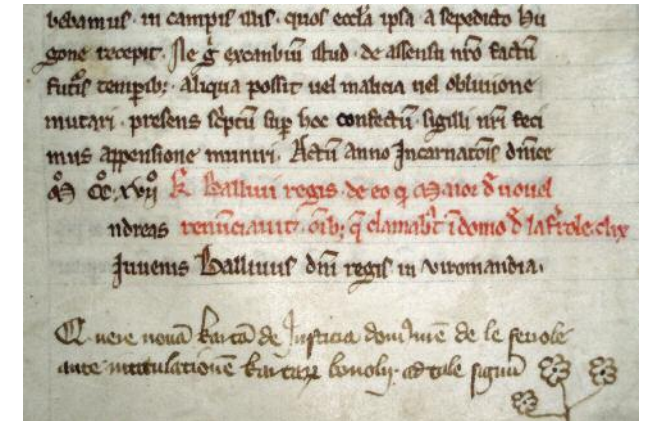 bebamus · in campis illis · quos eccl̄a ipsa a sepedicto hu
gone recepit · Ne g̊ excambiū illud · de assensu nr̄o factū
futis temporib; · aliqua possit uel malicia uel obliuione
mutari · presens sc̄ptū sup hoc confectū · sigilli nr̄i feci
mus appensione muniri · Actū anno Incarnatōis dn̄ice
Mͦ CCͦ xvijͦ K̄ Balliui regis de eo q Maior d̄ noual
ndreas renūciauit · oīb; q̄ clamab̄t ī domo d̄ la
Juuenis Balliuus dn̄i regis in viromandia ·
Quere nouā kartā de Justicia dom de le feuole
ante intitulationē kartarꝝ · ad tale signū